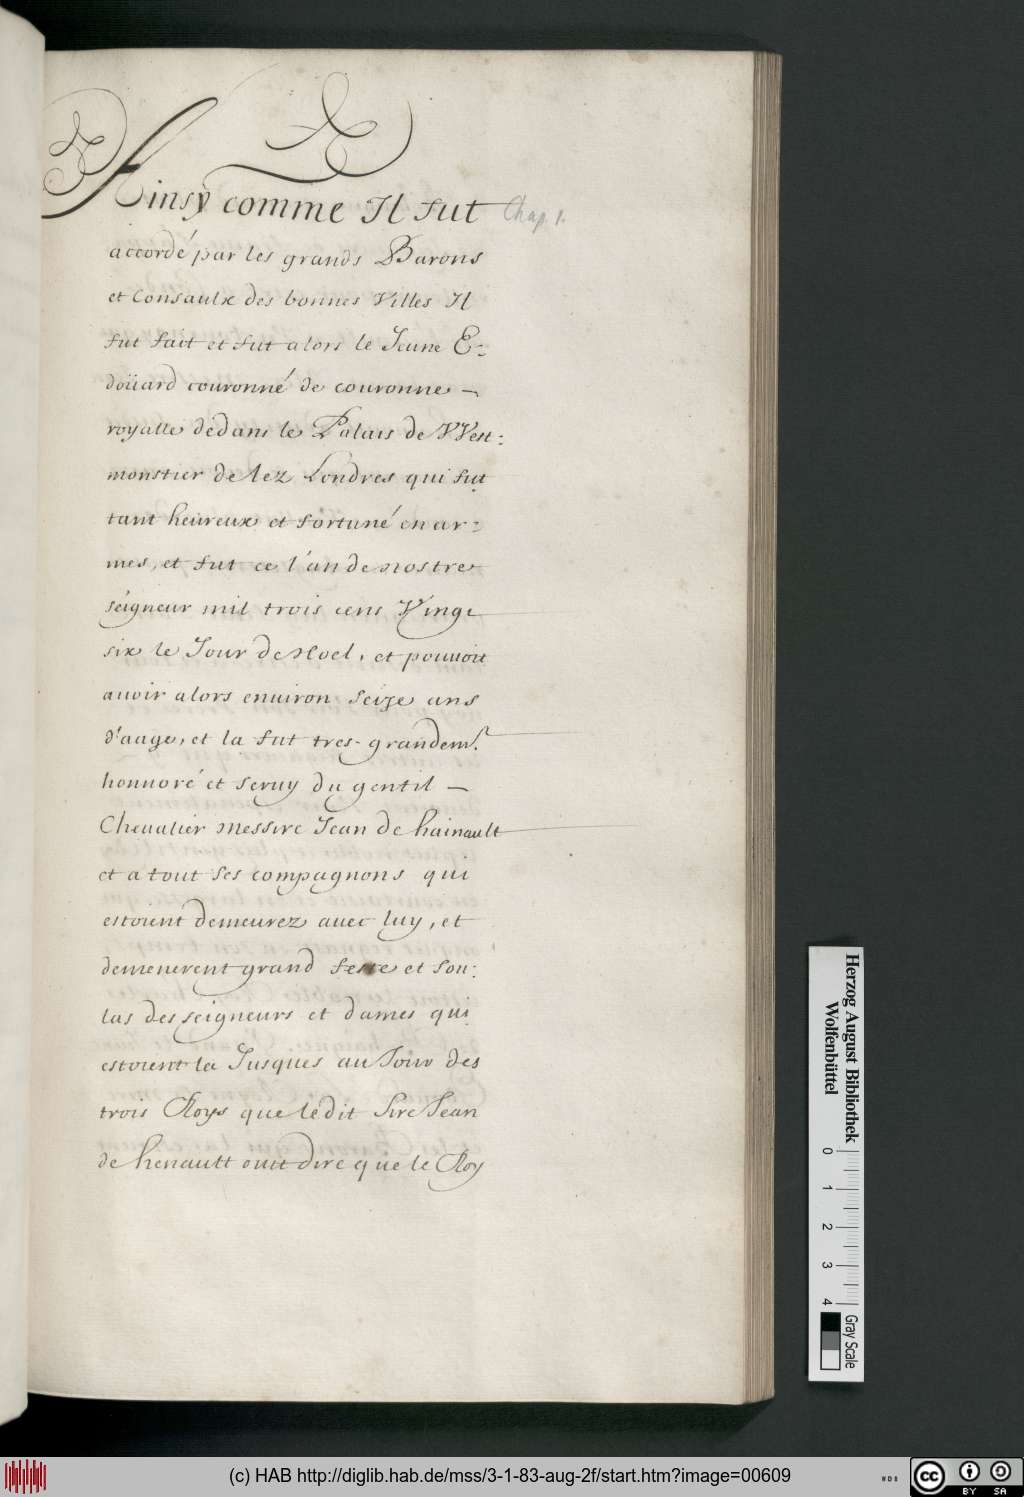 Ainsy comme Il fut Chap. 1.
accordé par les grands Barons
et Consaulx des bonnes Villes Il
fut fait et fut alors le Jeune E-
doüard couronné de couronne –
royalle dédans le Palais de West:
monstier de lez Londres qui fut
tant heureux et fortuné en ar:
mes, et fut ce l'an de nostre
seigneur mil trois cens Vingt
six le Jour de Noel, et pouuoit
auoir alors enuiron seize ans
d'aage, et la fut tres-grandemt.
honnoré et seruy du gentil –
Cheualier Messire Jean de hainault
et a tout ses compagnons qui
estoient demeurez auec luy, et
demenerent grand feste et sou:
las des seigneurs et dames qui
estoient la Jusques au Jour des
trois Roys que ledit Sire Jean
de henault ouit dire que le Roy
Herzog August Bibliothek
Wolfenbüttel
0 1 2 3 4
Gray Scale
(c) HAB http://diglib.hab.de/mss/3-1-83-aug-2f/start.htm?image=00609
WDB
cc BY SA